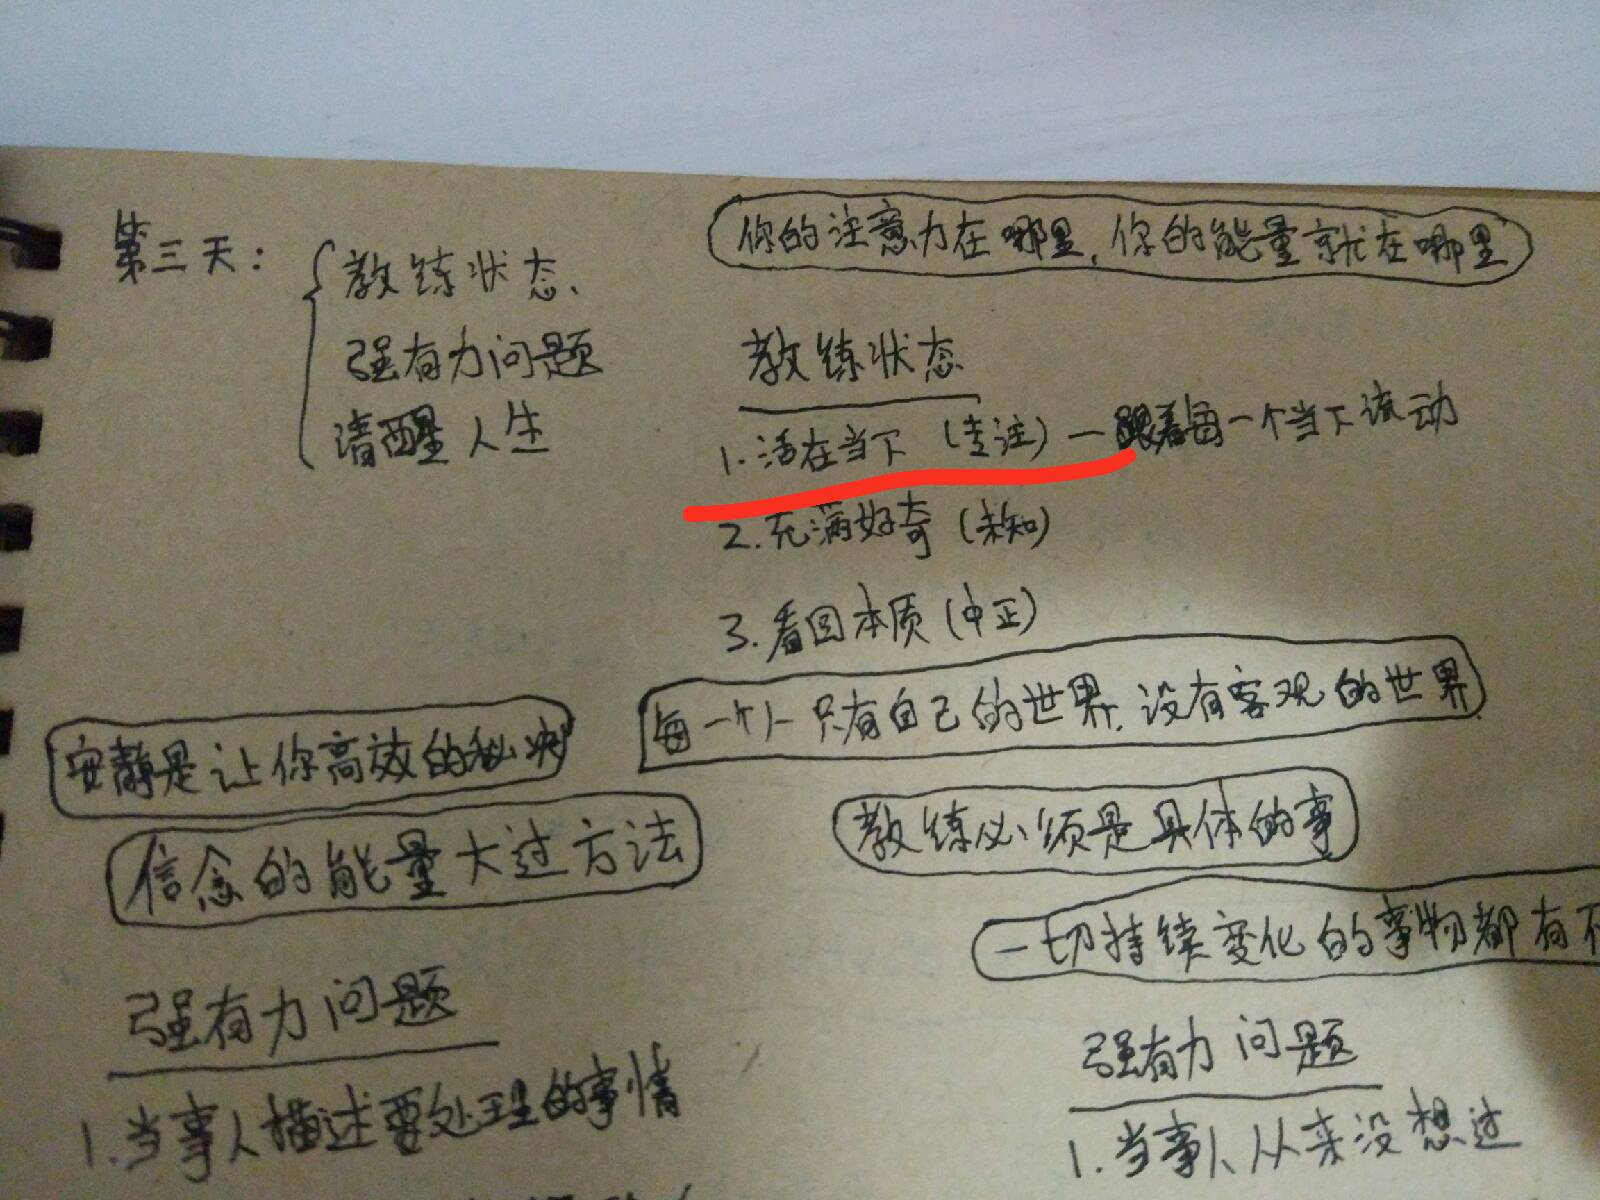 第三天：
教练状态、
强有力问题
清醒人生
你的注意力在哪里，你的能量就在哪里
教练状态
1.活在当下（专注）— 跟着每一个当下流动
2.充满好奇（未知）
3.看回本质（中正）
每一个人只有自己的世界，没有客观的世界
安静是让你高效的秘诀
信念的能量大过方法
教练必须是具体的事
一切持续变化的事物都有不
强有力问题
1.当事人描述要处理的事情
强有力问题
1.当事人从来没想过